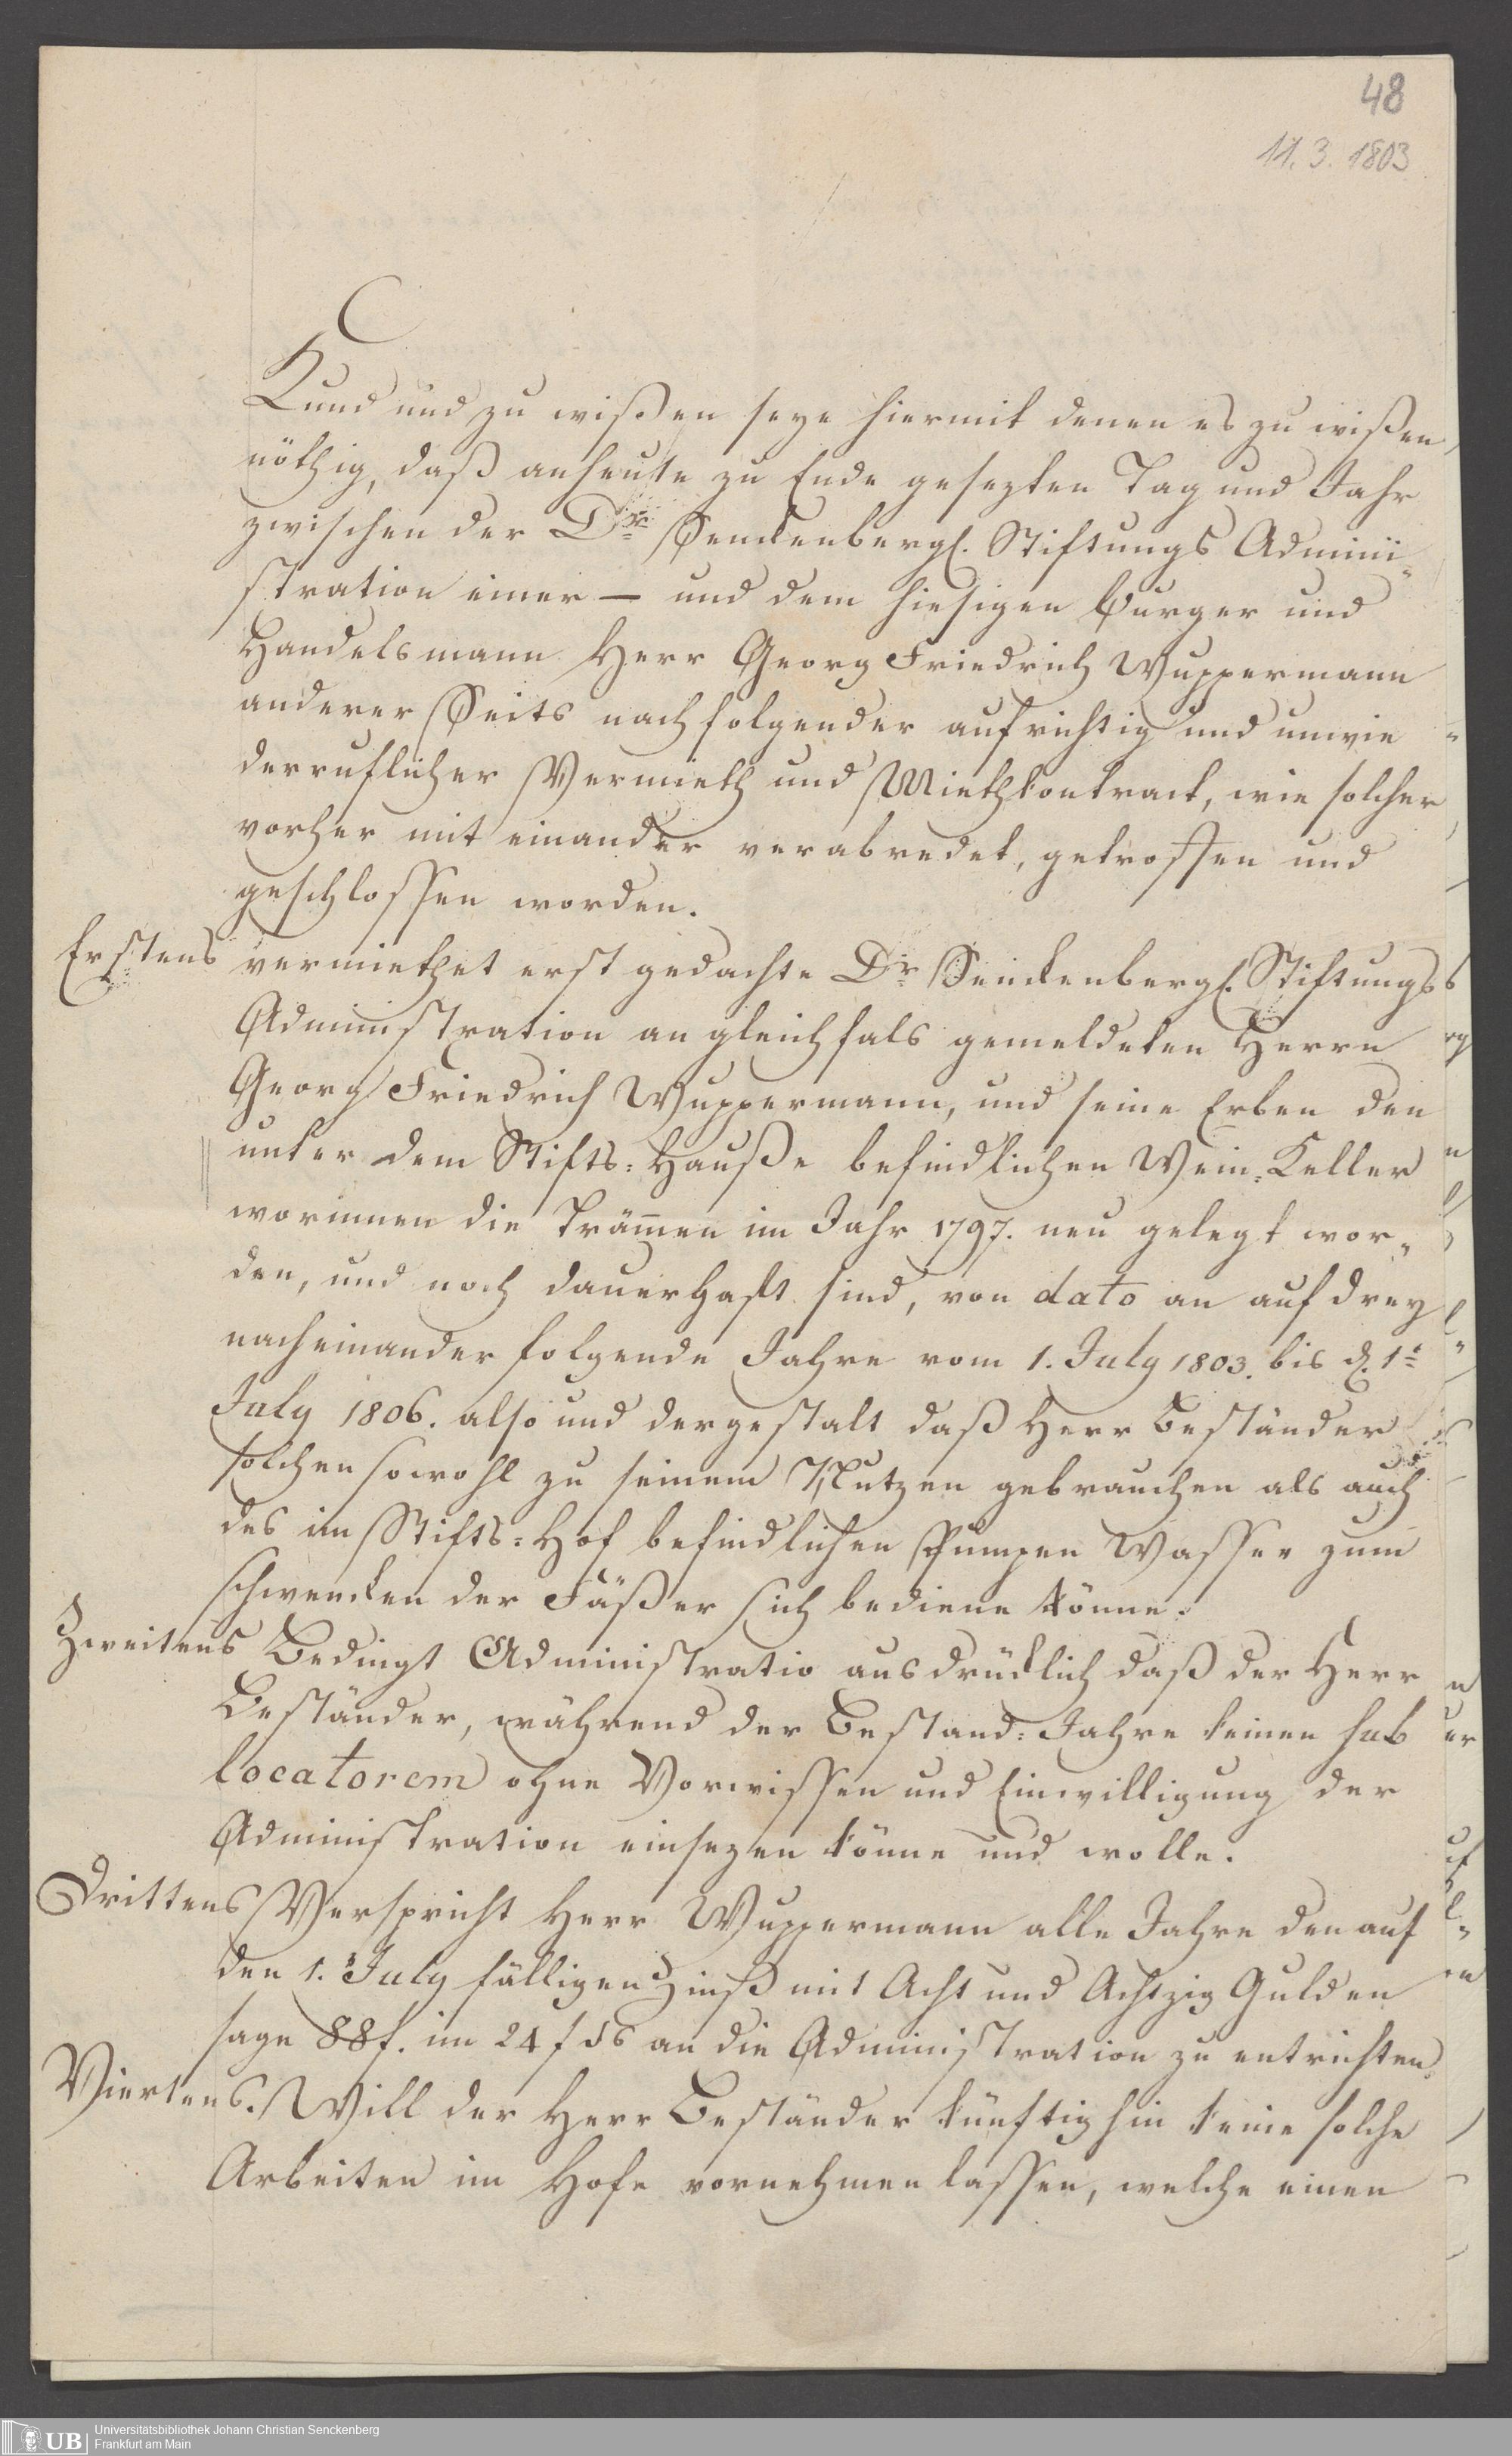 48
11. 3. 1803
Kund und zu wißen seye hiermit denen es zu wißen
nöthig, daß anheute zu Ende gesezten Tag und Jahr
zwischen der Dr. Senckenbergl. Stiftungs Admini-
stration einer — und dem hiesigen Burger und
Handelsmann Herr Georg Friedrich Wuppermann
anderer Seits nachfolgender aufrichtig und unwie
derruflicher Vermieth und Miethkontract, wie solcher
vorher mit einander verabredet, getroffen und
geschlossen worden.
Erstens vermiethet erst gedachte Dr. Senckenbergl. Stiftungs
Administration an gleichfals gemeldeten Herrn
Georg Friedrich Wuppermann, und seine Erben den
unter dem Stifts-Hauße befindlichen Wein-Keller
worinnen die Trämen im Jahr 1797. neu gelegt wor-
den, und noch dauerhaft sind, von dato an auf drey
nacheinander folgende Jahre vom 1. July 1803. bis d. 1t
July 1806. also und dergestalt daß Herr Beständer
solchen sowohl zu seinem Nutzen gebrauchen als auch
des im Stifts-Hof befindlichen Pumpen Wasser zum
schwencken der Fäßer sich bediene könne.
Zweitens Bedingt Administratio ausdrücklich daß der Herr
Beständer, während der Bestand-Jahre keinen sub
locatorem ohne Vorwissen und Einwilligung der
Administration einsezen könne und wolle.
Drittens Verspricht Herr Wuppermann alle Jahre den auf
den 1. July fälligen Zinß mit Acht und Achtzig Gulden
sage 88f. im 24 f ß an die Administration zu entrichten.
Viertens. Will der Herr Beständer künftighin keine solche
Arbeiten im Hofe vornehmen lassen, welche einen
UB Universitätsbibliothek Johann Christian Senckenberg
Frankfurt am Main